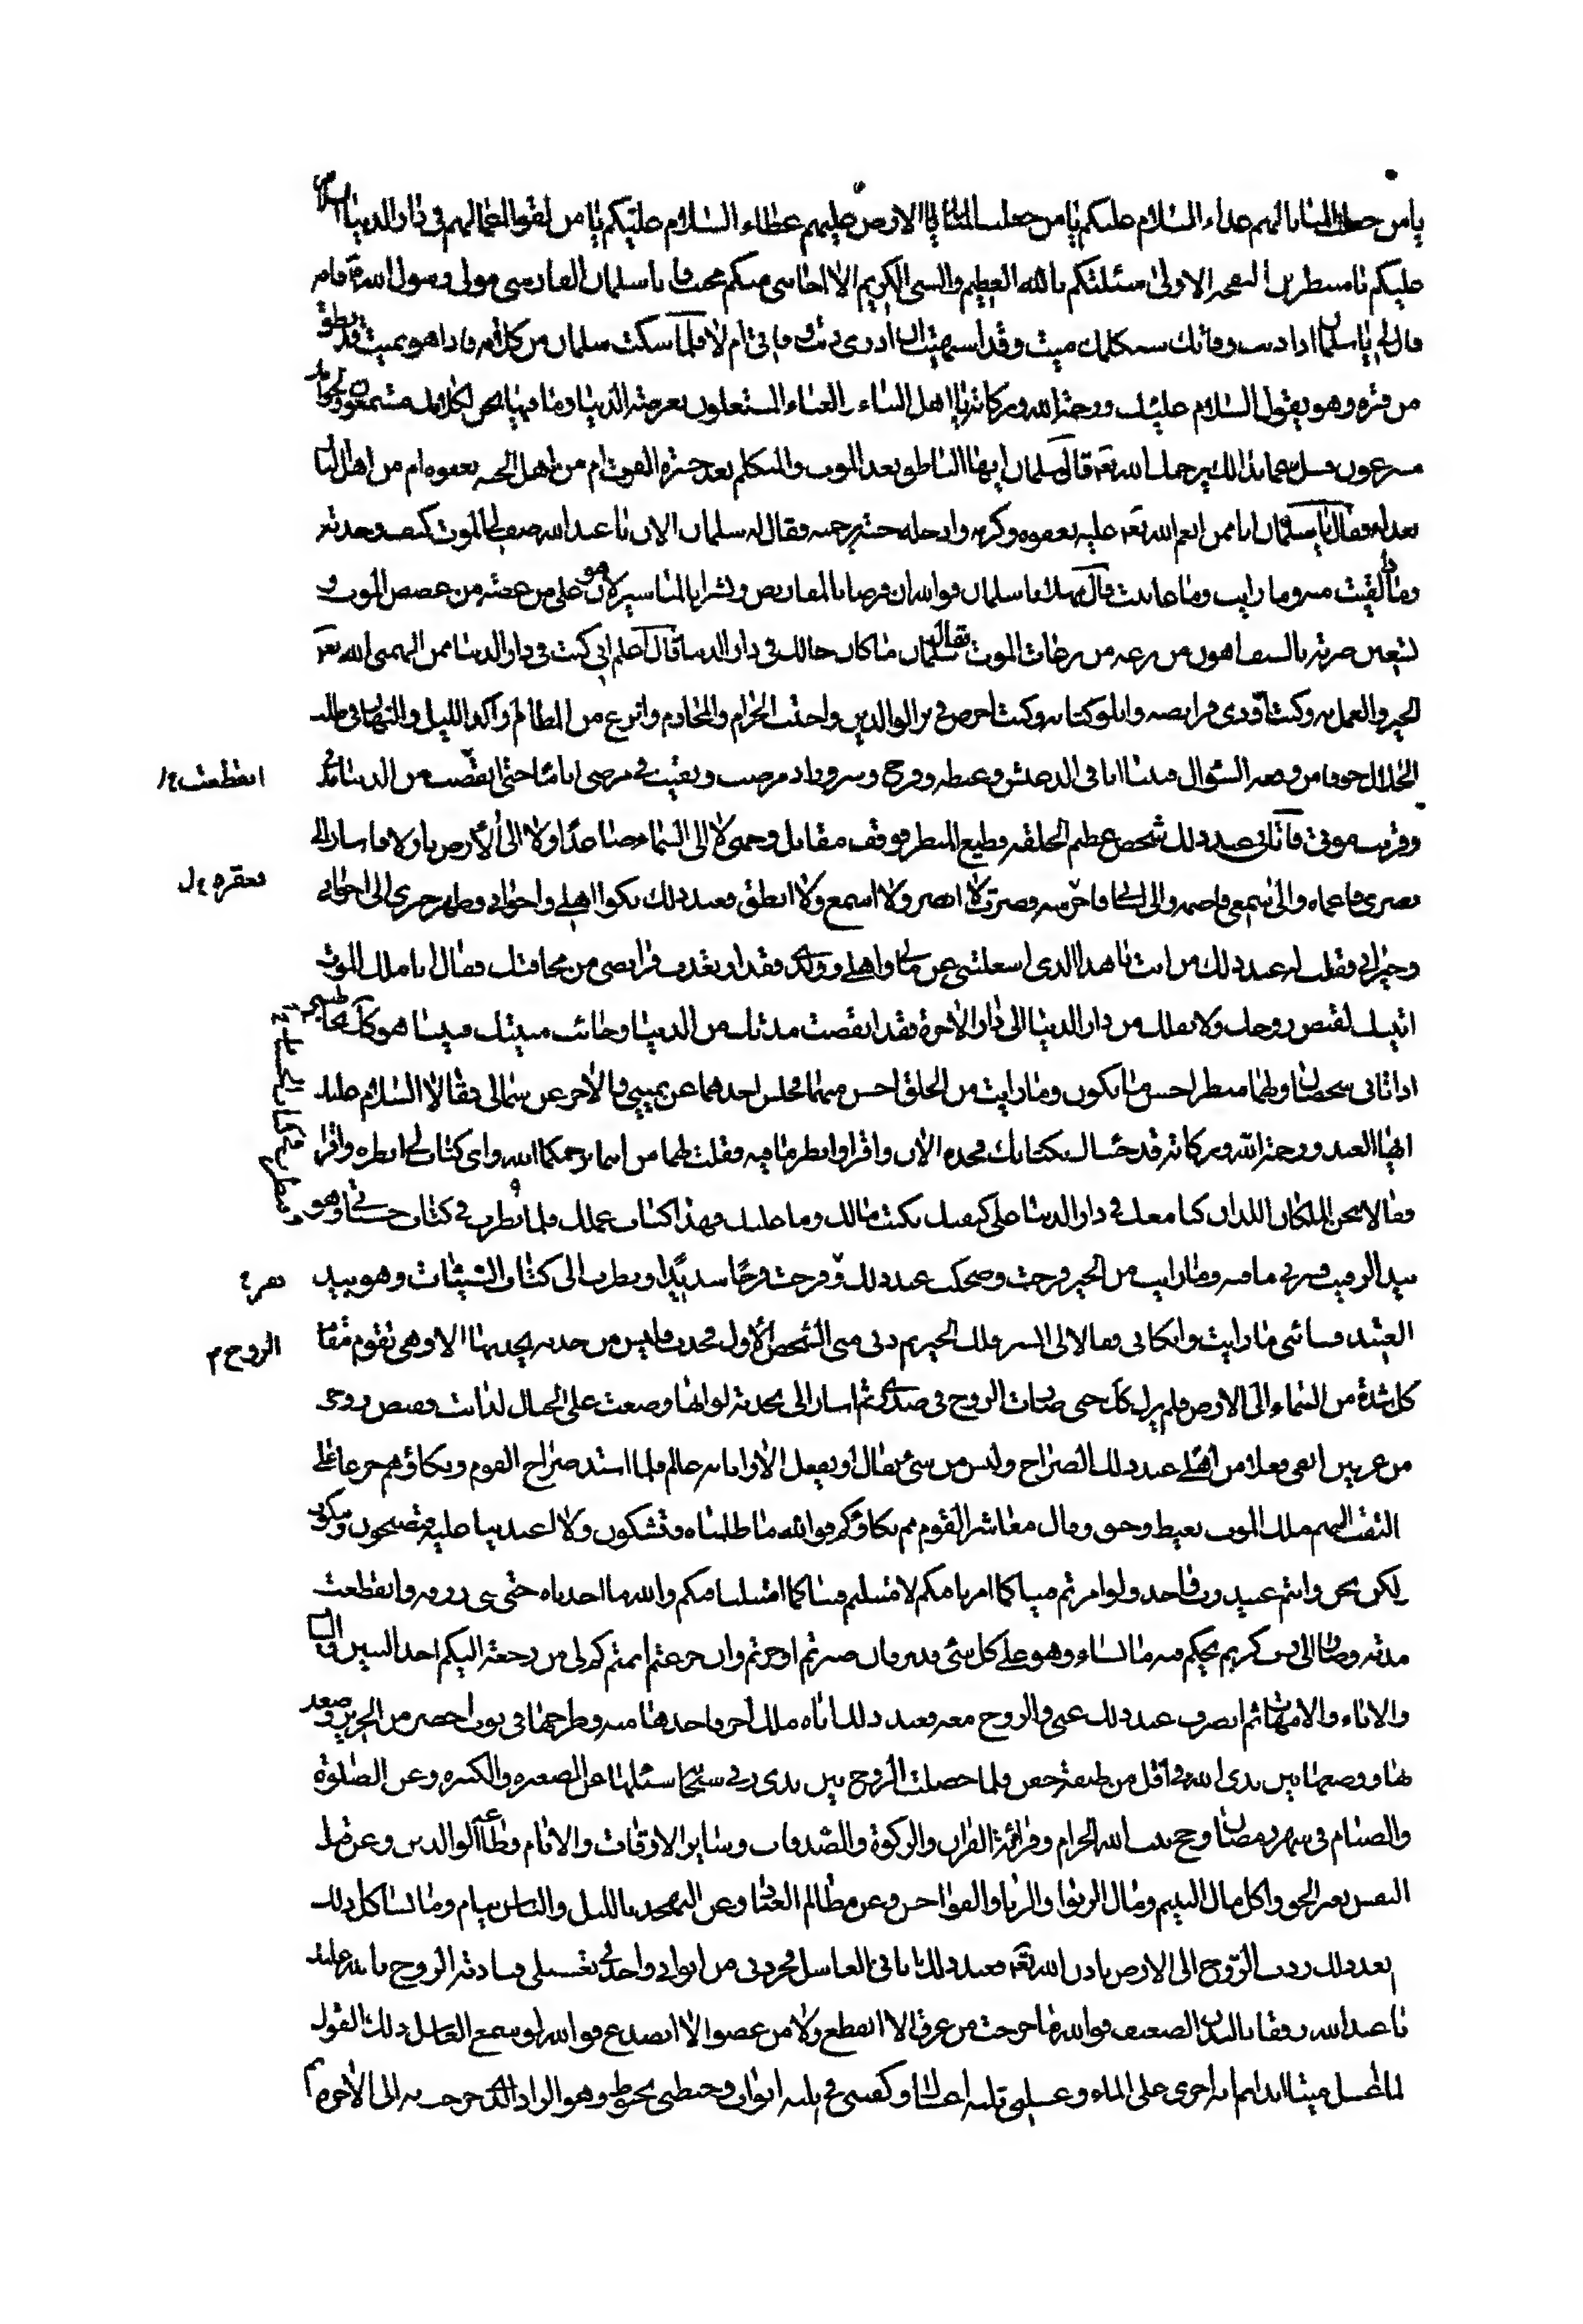 يا من جعلت المنايا لهم غداء السلام عليكم يا من جعلت الارض عليهم غطاء السلام عليكم يا من لقوا اعمالهم في دار الدنيا السلام
عليكم يا منتظرين النفخة الاولى سئلتكم بالله العظيم والنبي الكريم الا اجابني منكم مجيب فانا سلمان الفارسي مولى رسول الله فانه
قال لي يا سلمان اذا دنت وفاتك سيكلمك ميت وقد اشتهيت ان ادري دنت وفاتي ام لا فلما سكت سلمان من كلامه فاذا هو بميت قد نطق
من قبره وهو يقول السلام عليك ورحمة الله وبركاته يا اهل البناء والفناء المشتغلون بعرصة الدنيا وما فيها نحن لكلامك مستمعون ولجوابك
مسرعون فسل عما بدا لك يرحمك الله تعالى قال سلمان ايها الناطق بعد الموت والمتكلم بعد حسرة الفوت ام من اهل الجنة بعفوه ام من اهل النار
بعدله فقال يا سلمان انا ممن انعم الله تعالى عليه بعفوه وكرمه وادخله جنته برحمته فقال له سلمان الان يا عبد الله صف لي الموت كيف وجدته
وما ذا لقيت منه وما رايت وما عاينت قال مهلا يا سلمان فوالله ان قرضا بالمقاريض ونشرا بالمناشير لاهون علي من غصة من غصص الموت و
لتسعين ضربة بالسيف اهون من نزعة من نزعات الموت فقال سلمان ما كان حالك في دار الدنيا قال اعلم اني كنت في دار الدنيا ممن الهمني الله تعالى
الخير والعمل به وكنت اؤدي فرايضه واتلو كتابه وكنت احرص في بر الوالدين واجتنب الحرام والمحارم وانزع من المظالم واكد الليل والنهار في طلب
الحلال خوفا من وقفة السؤال فبينا انا في الذ عيش وغبطة وفرح وسرور اذ مرضت وبقيت في مرضي اياما حتى انقضت من الدنيا مدتي
انقطعت
وقرب موتي فاتاني عند ذلك شخص عظيم الخلقة فظيع المنظر فوقف مقابل وجهي لا الى السماء صاعدا ولا الى الارض نازلا فاشار الى
بصري فاعماه والى سمعي فاصمه والى لساني فاخرسه فصرت لا ابصر ولا اسمع ولا انطق فعند ذلك بكوا اهلي واخواني وظهر خبري الى اخواني
وجيراني فقلت له عند ذلك من انت يا هذا الذي اشغلتني عن مالي واهلي وولدي فقد ارتعدت فرايصي من مخافتك فقال انا ملك الموت
اتيتك لقبض روحك ولانقلك من دار الدنيا الى دار الاخرة فقد انقضت مدتك من الدنيا وجائت منيتك فبينا هو كذلك يخاطبني
اذ اتاني شخصان ولهما منظر احسن ما يكون وما رايت من الخلق احسن منهما فجلس احدهما عن يميني والاخر عن شمالي فقالا السلام عليك
ايها العبد ورحمة الله وبركاته قد جئناك بكتابك فخذه الان واقرا وانظر ما فيه فقلت لهما من انتما يرحمكما الله واي كتاب لي انظره واقرا
فقالا نحن الملكان اللذان كنا معك في دار الدنيا على كتفيك نكتب مالك وما عليك فهذا كتاب عملك فلما نظرت في كتاب حسناتي وهو
بيد الرقيب فسرني ما فيه وما رايت من الخير فرحت وضحكت عند ذلك وفرحت فرحا شديدا ونظرت الى كتاب السيئات وهو بيد
العتيد فسائني ما رايت وابكاني فقالا لي ابشر فلك الخير ثم دنى مني الشخص الاول فجذب فليس من جذبة يجذبها الا وهي تقوم مقام
الروح م
كل شدة من السماء الى الارض فلم يزل كذلك حتى صارت الروح في صدري ثم اشار الي بجذبة لو انها وضعت على الجبال لذابت فقبض روحي
من عرنين انفي فعلا من اهلي عند ذلك الصراخ وليس من شيء يقال او يفعل الا وانا به عالم فلما اشتد صراخ القوم وبكاؤهم جزعا علي
التفت اليهم ملك الموت بغيظ وحنق وقال معاشر القوم مم بكاؤكم فوالله ما ظلمناه فتشكون ولا اعتدينا عليه فتضجون وتبكون
لكن نحن وانتم عبيد رب واحد ولو امرتم فينا كما امرنا فيكم لامتثلتم فينا كما امتثلنا فيكم والله ما اخذناه حتى فني رزقه وانقطعت
مدته وصار الى رب كريم يحكم فيه ما يشاء وهو على كل شيء قدير فان صبرتم اوجرتم وان جزعتم اثمتم كم لي من رجعة اليكم اخذ البنين والبنات
والاباء والامهات ثم انصرف عند ذلك عني والروح معه فعند ذلك اتاه ملك اخر فاخذها منه وطرحها في ثوب اخضر من الحرير وصعد
بها ووضعها بين يدي الله في اقل من طبقة جفن فلما حصلت الروح بين يدي ربي سبحانه سئلها عن الصغيرة والكبيرة وعن الصلوة
والصيام في شهر رمضان وحج بيت الله الحرام وقرائة القران والزكوة والصدقات وساير الاوقات والايام وطاعة الوالدين وعن قتل
النفس بغير الحق واكل مال اليتيم ومال الربوا والزنا والفواحش وعن مظالم العباد وعن التهجد بالليل والناس نيام وما يشاكل ذلك
بعد ذلك ردت الروح الى الارض باذن الله تعالى فعند ذلك اتاني الغاسل فجردني من اثوابي واخذ في تغسيلي فنادته الروح بالله عليك
يا عبد الله رفقا بالبدن الضعيف فوالله ما خرجت من عرق الا انقطع ولا من عضو الا انصدع فوالله لو سمع الغاسل ذلك القول
لما غسل ميتا ابدا ثم انه اجرى علي الماء وغسلني ثلثة اغسال وكفنني في ثلثة اثواب وحنطني بحنوط وهو الزاد الذي خرجت به الى الاخرة